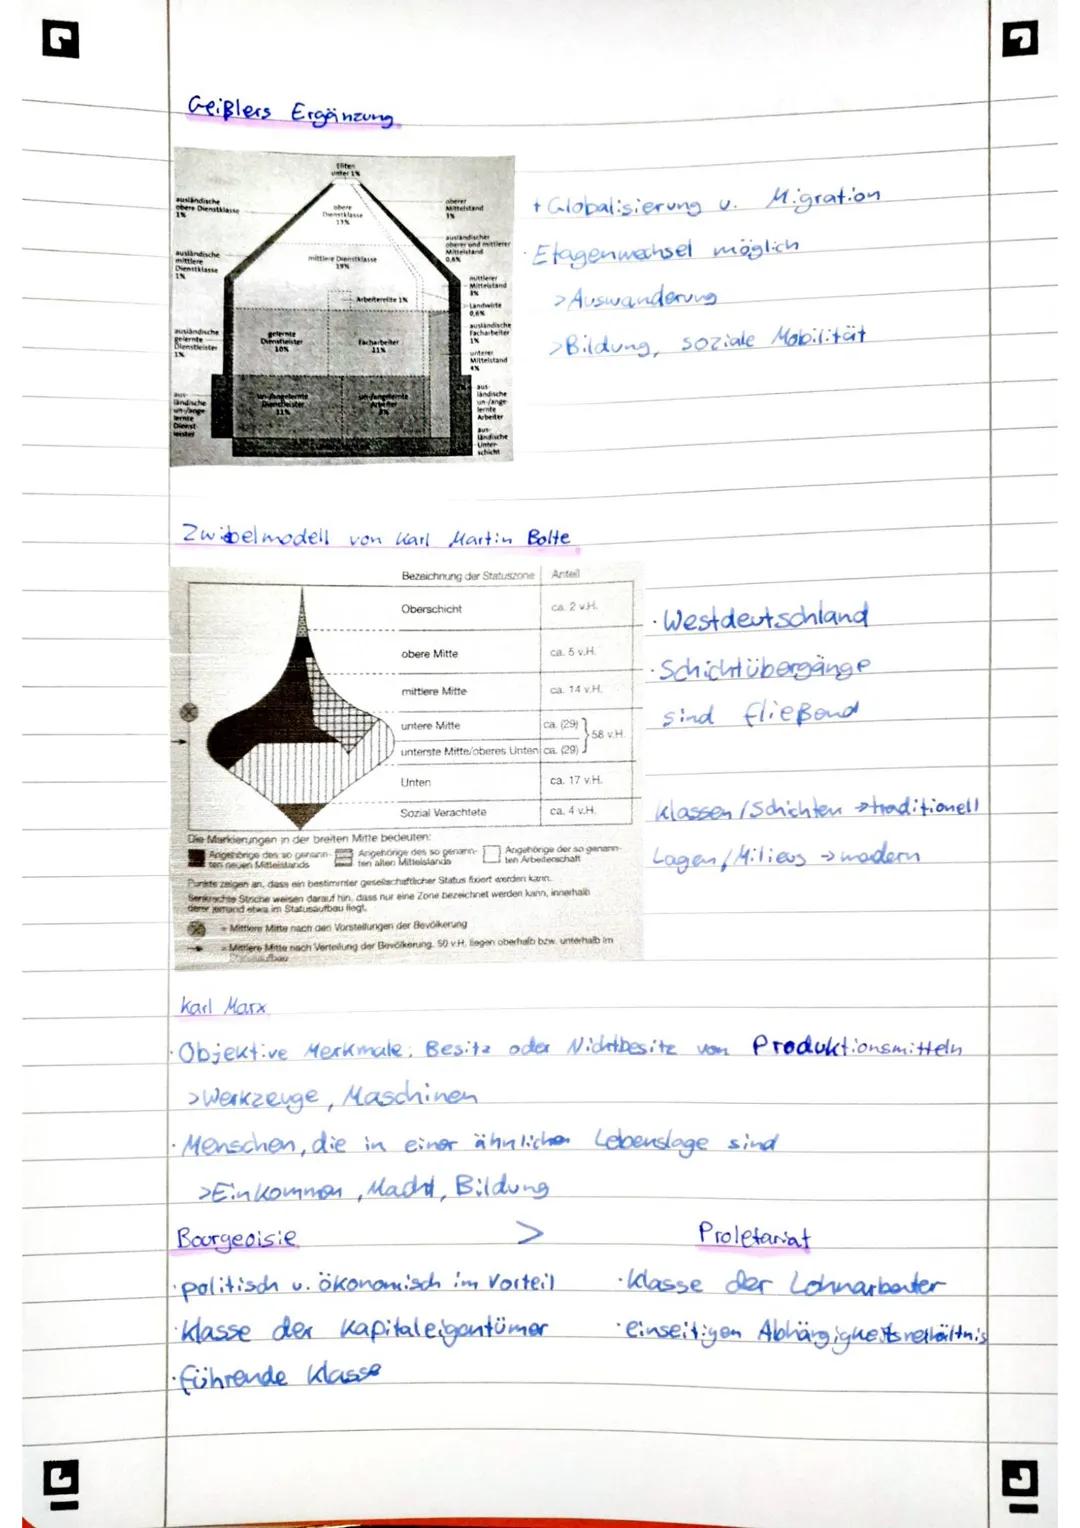 Geißlers Ergänzung
Eliten
unter 1%
ausländische
obere Dienstklasse
1%
obere
Dienstklasse
oberer
Mittelstand
ausländischer
oberer und mittlerer
Mittelstand
0,6%
ausländische
mittlere
Dienstklasse
1%
mittlere Dienstklasse
19%
mittlerer
Mittelstand
Arbeiterelite 1%
Landwirte
0,6%
ausländische
gelernte
Dienstleister
1%
gelernte
Dienstleister
10%
Facharbeiter
11%
ausländische
Facharbeiter
1%
unterer
Mittelstand
4%
aus-
ländische
un-/ange-
lernte
Dienst-
leister
un-/angelernte
Dienstleister
11%
un-/angelernte
Arbeiter
aus-
ländische
un-/ange-
lernte
Arbeiter
aus-
ländische
Unter-
schicht
+ Globalisierung u. Migration
· Etagenwechsel möglich
> Auswanderung
> Bildung, soziale Mobilität
Zwiebelmodell von Karl Martin Bolte
Bezeichnung der Statuszone Anteil
Oberschicht ca. 2 v.H.
obere Mitte ca. 5 v.H.
mittlere Mitte ca. 14 v.H.
untere Mitte ca. (29)
58 v.H.
unterste Mitte/oberes Unten ca. (29)
Unten ca. 17 v.H.
Sozial Verachtete ca. 4 v.H.
Die Markierungen in der breiten Mitte bedeuten:
Angehörige des so genann-
ten neuen Mittelstands
Angehörige des so genann-
ten alten Mittelstands
Angehörige der so genann-
ten Arbeiterschaft
Punkte zeigen an, dass ein bestimmter gesellschaftlicher Status fixiert werden kann.
Senkrechte Striche weisen darauf hin, dass nur eine Zone bezeichnet werden kann, innerhalb
derer jemand etwa im Statusaufbau liegt.
= Mittlere Mitte nach den Vorstellungen der Bevölkerung
= Mittlere Mitte nach Verteilung der Bevölkerung. 50 v.H. liegen oberhalb bzw. unterhalb im
Statusaufbau
· Westdeutschland
· Schichtübergänge
sind fließend
Klassen / Schichten → traditionell
Lagen / Milieus → modern
Karl Marx
· Objektive Merkmale: Besitz oder Nichtbesitz von Produktionsmitteln
> Werkzeuge, Maschinen
· Menschen, die in einer ähnlichen Lebenslage sind
> Einkommen, Macht, Bildung
Bourgeoisie > Proletariat
· politisch u. ökonomisch im Vorteil
· Klasse der Kapitaleigentümer
· führende Klasse
· Klasse der Lohnarbeiter
· einseitigen Abhängigkeitsverhältnis